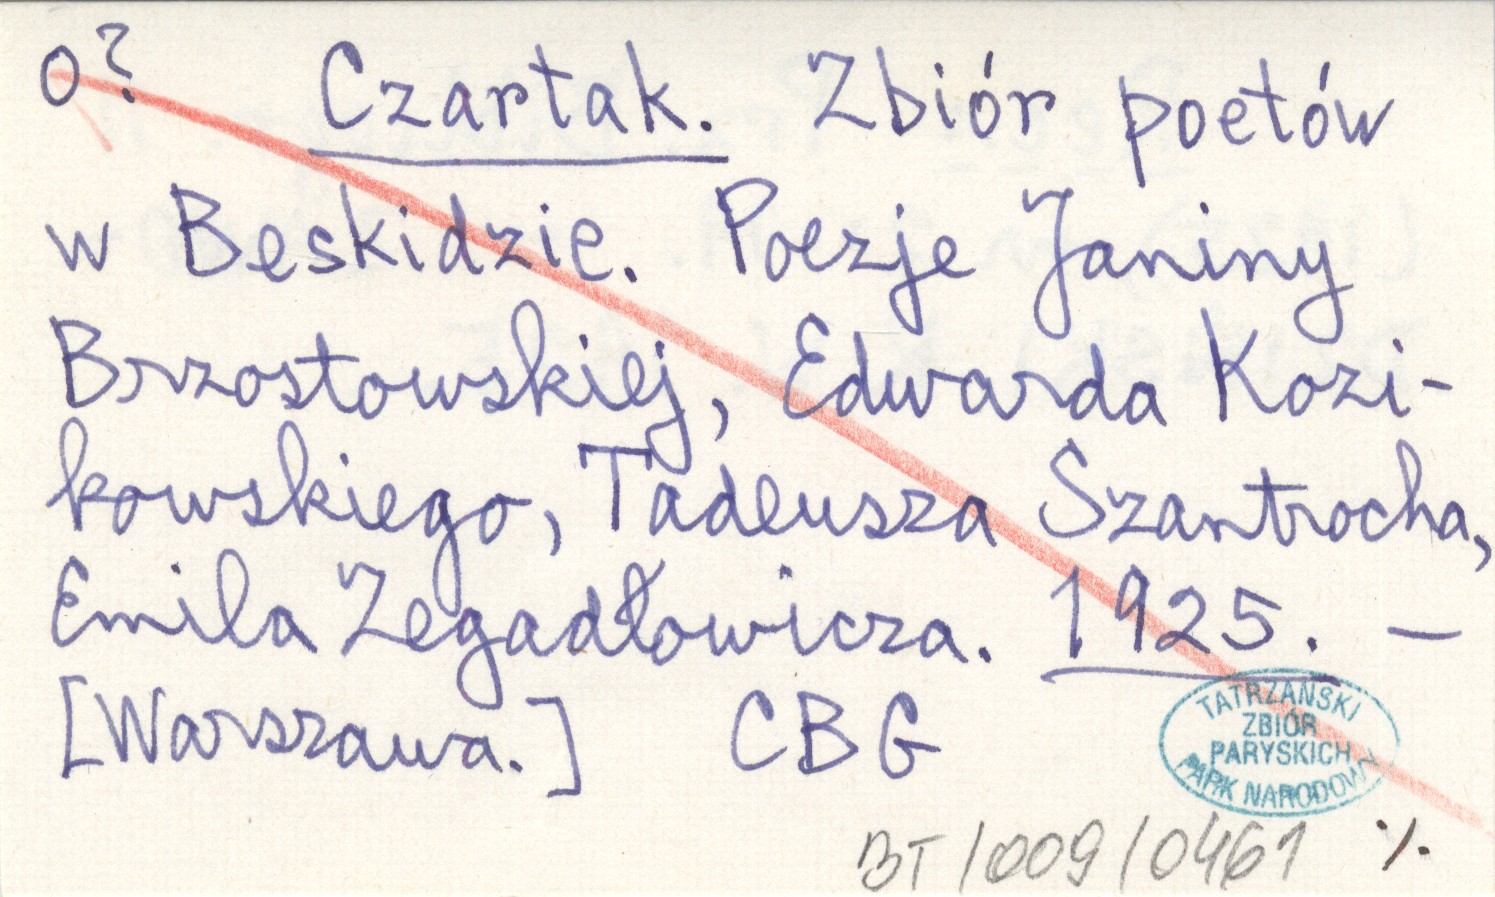 o? Czartak. Zbiór poetów
w Beskidzie. Poezje Janiny
Brzostowskiej, Edwarda Kozi-
kowskiego, Tadeusza Szantrocha,
Emila Zegadłowicza. 1925. —
[Warszawa.] CBG
TATRZAŃSKI
ZBIÓR
PARYSKICH
PARK NARODOWY
BT/009/0461 ./.